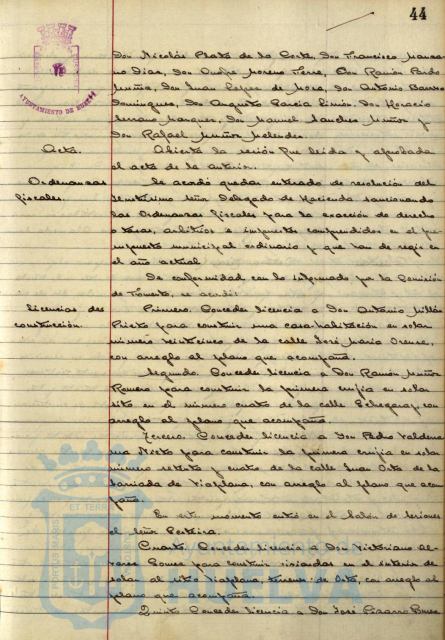 44
AYUNTAMIENTO DE HUELVA
Don Nicolás Prats de la Corte, Don Francisco
Díaz, Don Andrés Moreno Don Ramón Pardo
Don Juan López de Mora, Don Antonio Barroso
Domínguez, Don Augusto García Limón, Don Horacio
Serrano Marquez, Don Manuel Sanchez Muñoz y
Don Rafael Muñoz Melendez.
Acta.
Abierta la sesión fue leida y aprobada
el acta de la anterior.
Ordenanzas
fiscales.
Se acordó quedar enterado de resolución del
Ilustrísimo Señor Delegado de Hacienda sancionando
las Ordenanzas fiscales para la exacción de derechos
o tasas, arbitrios e impuestos comprendidos en el pre-
supuesto municipal ordinario y que han de regir en
el año actual
De conformidad con lo informado por la Comisión
de Fomento, se acordó:
Licencias de
construcción.
Primero. Conceder licencia a Don Antonio Millán
Prieto para construir una casa-habitación en solar
número veinticinco de la calle José María Orense,
con arreglo al plano que acompaña.
Segundo. Conceder licencia a Don Ramón Muñoz
Romero para construir la primera crujía en solar
sito en el número cuatro de la calle Echegaray, con
arreglo al plano que acompaña.
Tercero. Conceder licencia a Don Pedro
Nieto para construir la primera crujía en solar
número setenta y cuatro de la calle Juan Orta de la
barriada de Viaplana, con arreglo al plano que acom-
paña.
En este momento entró en el Salón de Sesiones
el Señor
Cuarto. Conceder licencia a Don Victoriano Al-
varez Gomez para construir viviendas en el interior de
solar al sitio Viaplana, terrenos de Orta, con arreglo al
plano que acompaña.
Quinto. Conceder licencia a Don José Pizarro
Ayuntamiento de
HUELVA